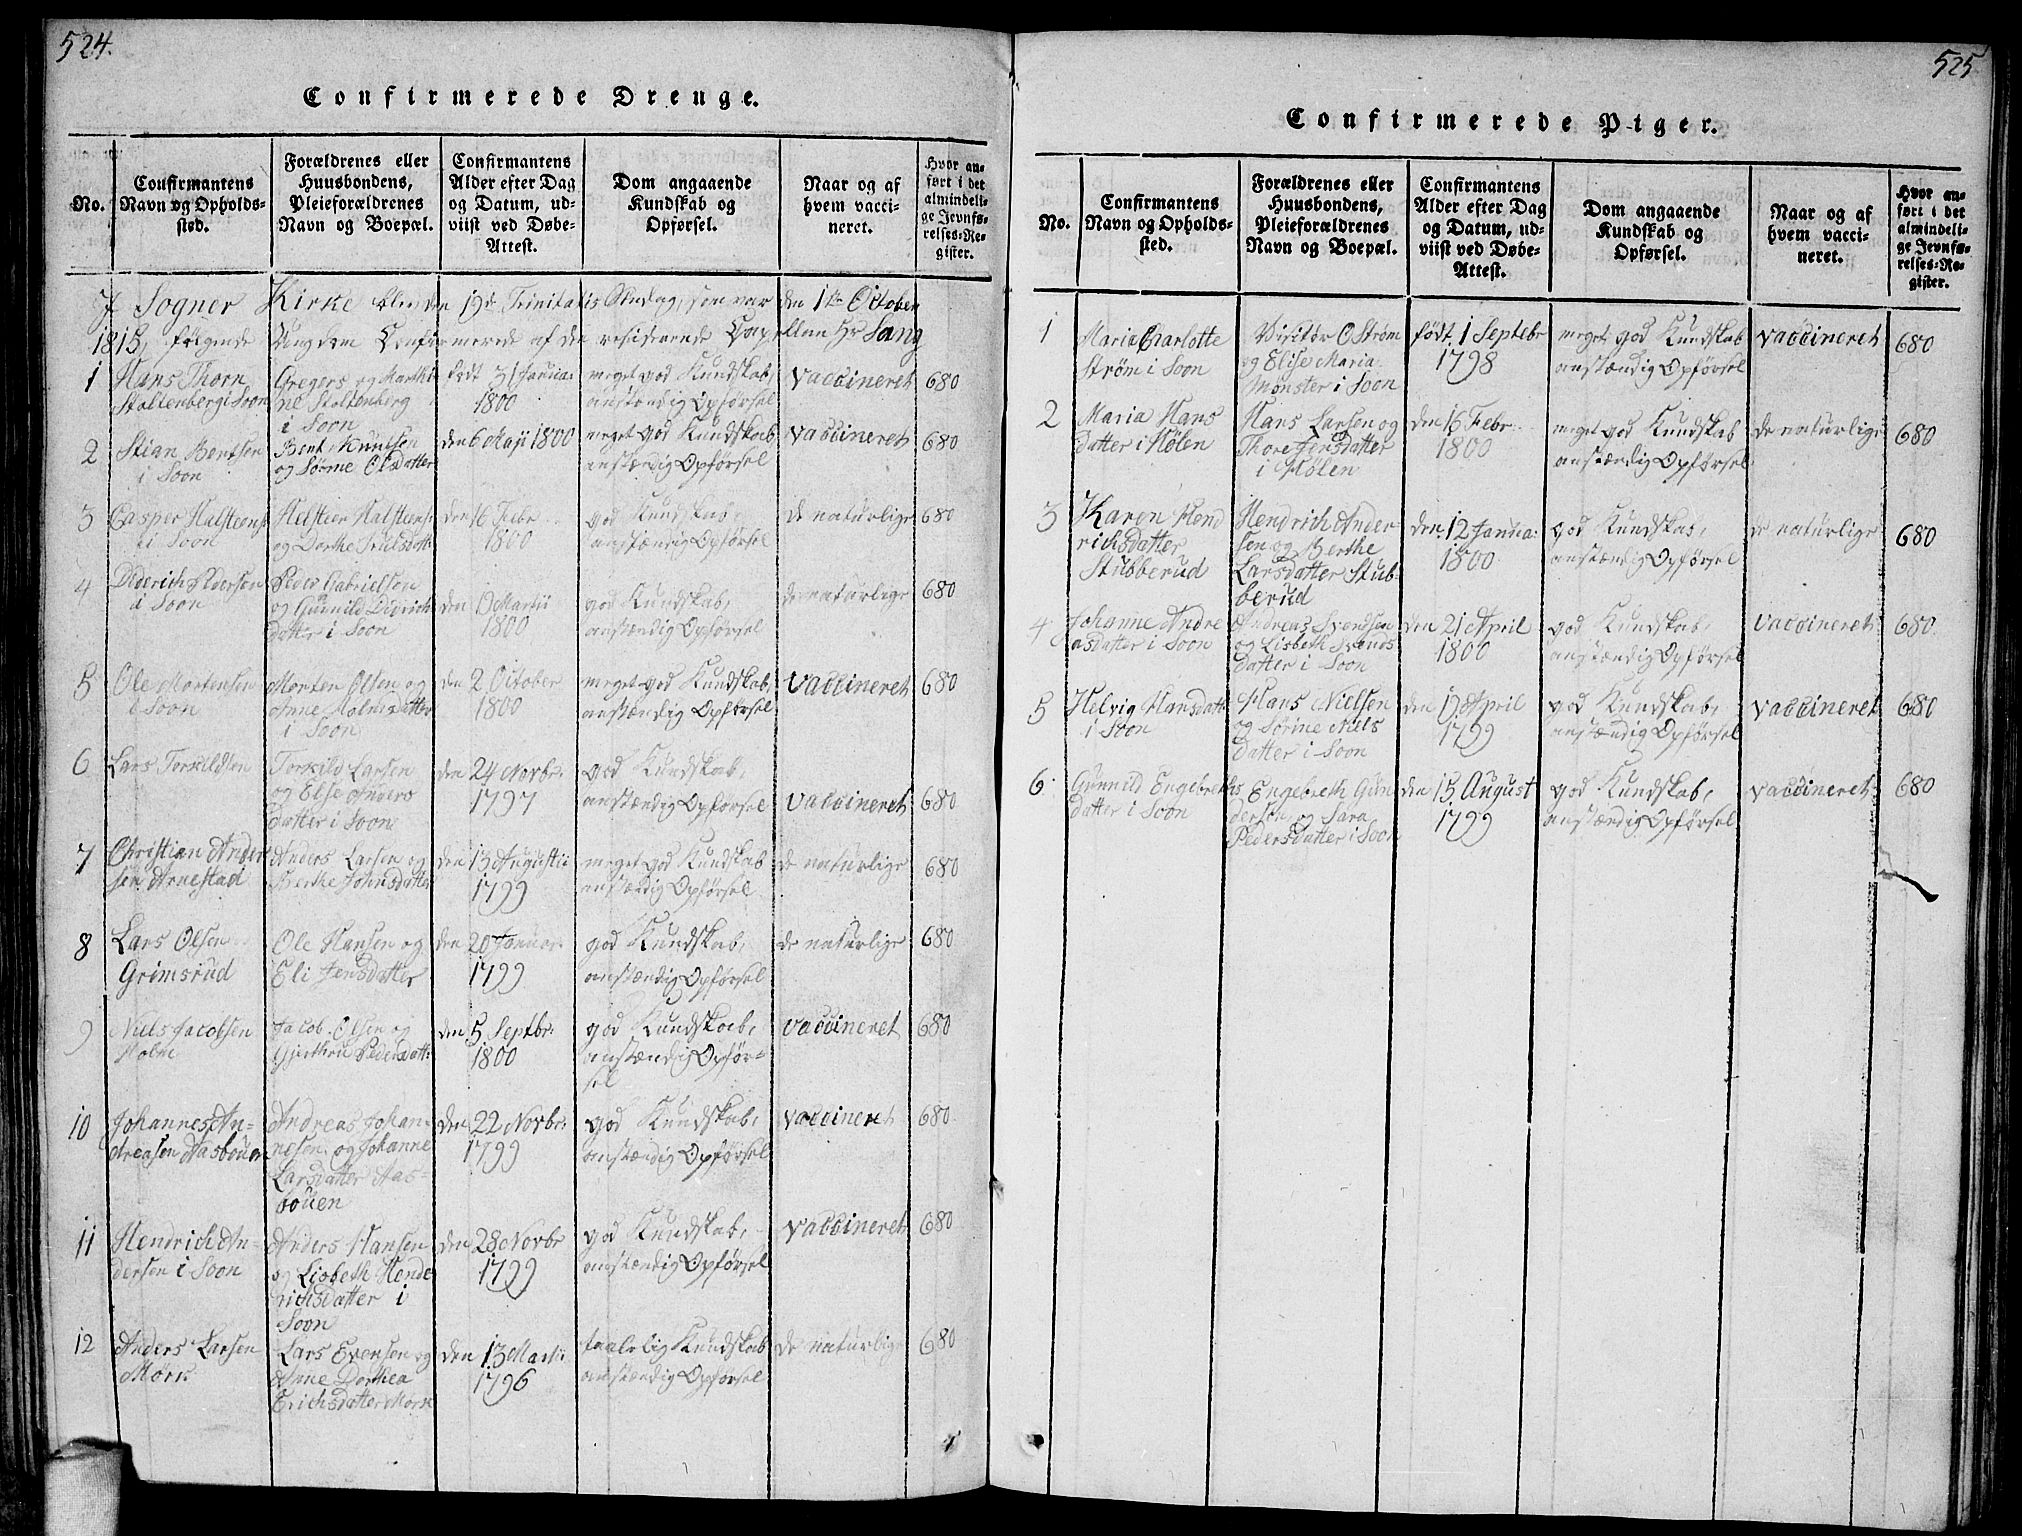 524.
Confirmerede Drenge.
No.
Confirmantens
Navn og Opholds-
sted.
Forældrenes eller
Huusbondens,
Pleieforældrenes
Navn og Boepæl.
Confirmantens
Alder efter Dag
og Datum, ud-
viist ved Døbe-
Attest.
Dom angaaende
Kundskab og
Opførsel.
Naar og af
hvem vacci-
neret.
Hvor an-
ført i det
almindeli-
ge Jevnfø-
relses-Re-
gister.
Sogner Kirke blev den 19de Trinitatis Søndag, som var den 1ste October
1815, følgende Ungdom Confirmerede af den residerende Capellan Hr Lang
1
Hans Thorn
Stoltenberg i Soon
Gregers og Marthi
ne Stoltenberg
i Soon
født 31 Janua:
1800
meget god Kundskab,
anstændig Opførsel
vaccineret
680
2
Stian Bentsen
i Soon
Bent Knutsen
og Sørine Olsdatter
den 6 Maji 1800
meget god Kundskab
anstændig Opførsel
vaccineret
680
3
Casper Halsteens
i Soon
Helsteen Halsteens:
og Dorthe Trulsdatt
den 16 Febr
1800
god Kundskab,
anstændig Opførsel
de naturlige
680
4
Diderich Pedersen
i Soon
Peder Gabrielsen
og Gunnild Didrich
datter i Soon
den 19 Martii
1800
god Kundskab,
anstændig Opførsel
de naturlige
680
5
Ole Mortensen
i Soon
Morten Olsen og
Anne Holmsdatter
i Soon
den 2 October
1800
meget god Kundskab,
anstændig Opførsel
vaccineret
680
6
Lars Torkildsen
Torkild Larsen
og Else Anders
datter i Soon
den 24 Novbr:
1797
god Kundskab,
anstændig Opførsel
vaccineret
680
7
Christian Ander
sen Arnestad
Anders Larsen og
Berthe Johnsdatter
den 13 Augustii
1799
meget god Kundskab
anstændig Opførsel
de naturlige
680
8
Lars Olsen
Grimsrud
Ole Hansen og
Eli Jensdatter
den 20 Januar:
1799
god Kundskab,
anstændig Opførsel
de naturlige
680
9
Niels Jacobsen
Holm
Jacob Olsen og
Gjerthru Pedersdatt:
den 5 Septbr:
1800
god Kundskab,
anstændig Opfør-
sel
vaccineret
680
10
Johannes An-
dreasen Aasbouen
Andreas Johan-
nesen og Johanne
Larsdatter Aas-
bouen
den 22 Novbr:
1799
god Kundskab,
anstændig Opførsel
vaccineret
680
11
Hendrich An-
dersen i Soon
Anders Hansen
og Lisbeth Hend
richsdatter i
Soon
den 28 Novbr
1799
god Kundskab,
anstændig Opførsel
vaccineret
680
12
Anders Larsen
Mørk
Lars Evensen og
Anne Dorthea
Erichsdatter Mørk
den 13 Martii
1796
taalelig Kundskab
anstændig Opførsel
de naturlige
680
525
Confirmerede Piger.
No.
Confirmantens
Navn og Opholds-
sted.
Forældrenes eller
Huusbondens,
Pleieforældrenes
Navn og Boepæl.
Confirmantens
Alder efter Dag
og Datum, ud-
viist ved Døbe-
Attest.
Dom angaaende
Kundskab og
Opførsel.
Naar og af
hvem vacci-
neret.
Hvor an-
ført i det
almindeli-
ge Jevnfø-
relses-Re-
gister.
1
Maria Charlotte
Strøm i Soon
Visitør O Strøm
og Elise Maria
Mønster i Soon
født 1 Septebr
1798
meget god Kundskab
anstændig Opførsel
vaccineret
680
2
Maria Hans
datter i Hølen
Hans Larsen og
Thore Jensdatter
i Hølen
den 16 Febr:
1800
meget god Kundskab
anstændig Opførsel
de naturlige
680
3
Karen Hend
richsdatter
Stubberud
Hendrich Ander
sen og Berthe
Larsdatter Stub-
berud
den 12 Janua:
1800
god Kundskab,
anstændig Opførsel
de naturlige
680
4
Johanne Andre
asdatter i Soon
Andreas Svendsen
og Lisbeth Svends
datter i Soon
den 21 April
1800
god Kundskab,
anstændig Opførsel
vaccineret
680
5
Helvig Hansdatt
i Soon
Hans Nielsen
og Sørine Niels
datter i Soon
den 19 April
1799
god Kundskab,
anstændig Opførsel
vaccineret
680
6
Gunnild Engebreths
datter i Soon
Engebreth Gun
dersen og Sara
Pedersdatter i Soon
den 15 August
1799
god Kundskab,
anstændig Opførsel
vaccineret
680